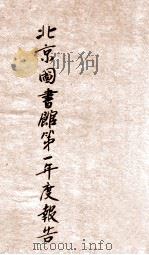 北京圖書館第一年度報告
www.toutu.info